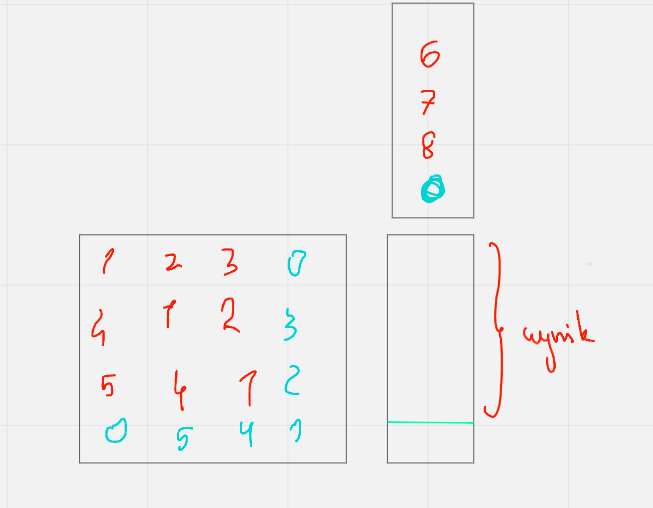 6
7
8
0
1 2 3 0
4 1 2 3
5 4 1 2
0 5 4 1
wynik